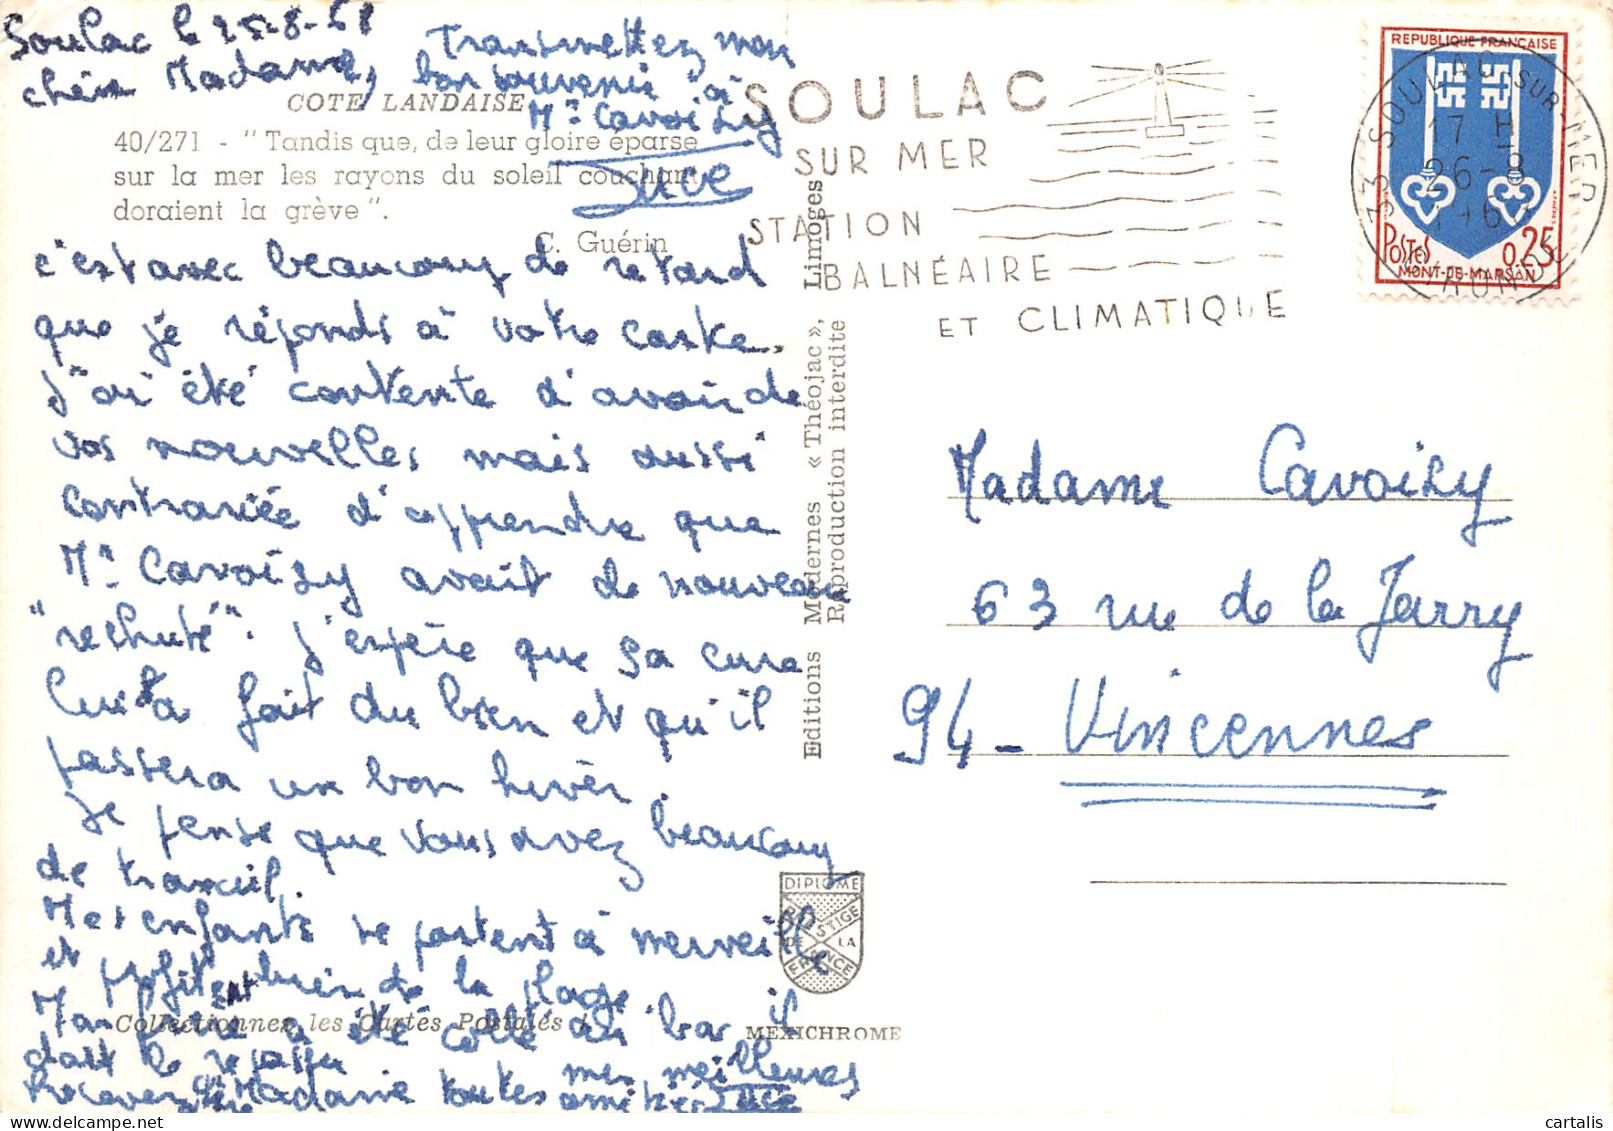 Soulac le 25-8-68
chère Madame,
Transmettez mon
bon souvenir à
Mr Cavoisy
COTE LANDAISE
40/271 - "Tandis que, de leur gloire éparse
sur la mer les rayons du soleil couchant
doraient la grève".
C. Guérin
c'est avec beaucoup de retard
que je réponds à votre carte.
J'ai été contente d'avoir de
vos nouvelles mais aussi
contrariée d'apprendre que
Mr Cavoisy avait de nouveau
"rechuté". J'espère que sa cure
lui a fait du bien et qu'il
passera un bon hiver.
Je pense que vous avez beaucoup
de travail.
Mes enfants se portent à merveille
et profitent bien de la plage.
Mon a été collé au bac il
doit le repasser
Recevez chère Madame toutes mes meilleures
amitiés
Collectionnez les Cartes Postales !
Editions Modernes « Théojac », Limoges
Reproduction interdite
DIPLOME
PRESTIGE
DE LA
FRANCE
MEXICHROME
SOULAC
SUR MER
STATION
BALNÉAIRE
ET CLIMATIQUE
REPUBLIQUE FRANÇAISE
POSTES 0,25
MONT-DE-MARSAN
33 SOULAC-SUR-MER
17 H
26-8
GIRONDE
Madame Cavoisy
63 rue de la Jarry
94 - Vincennes
cartalis